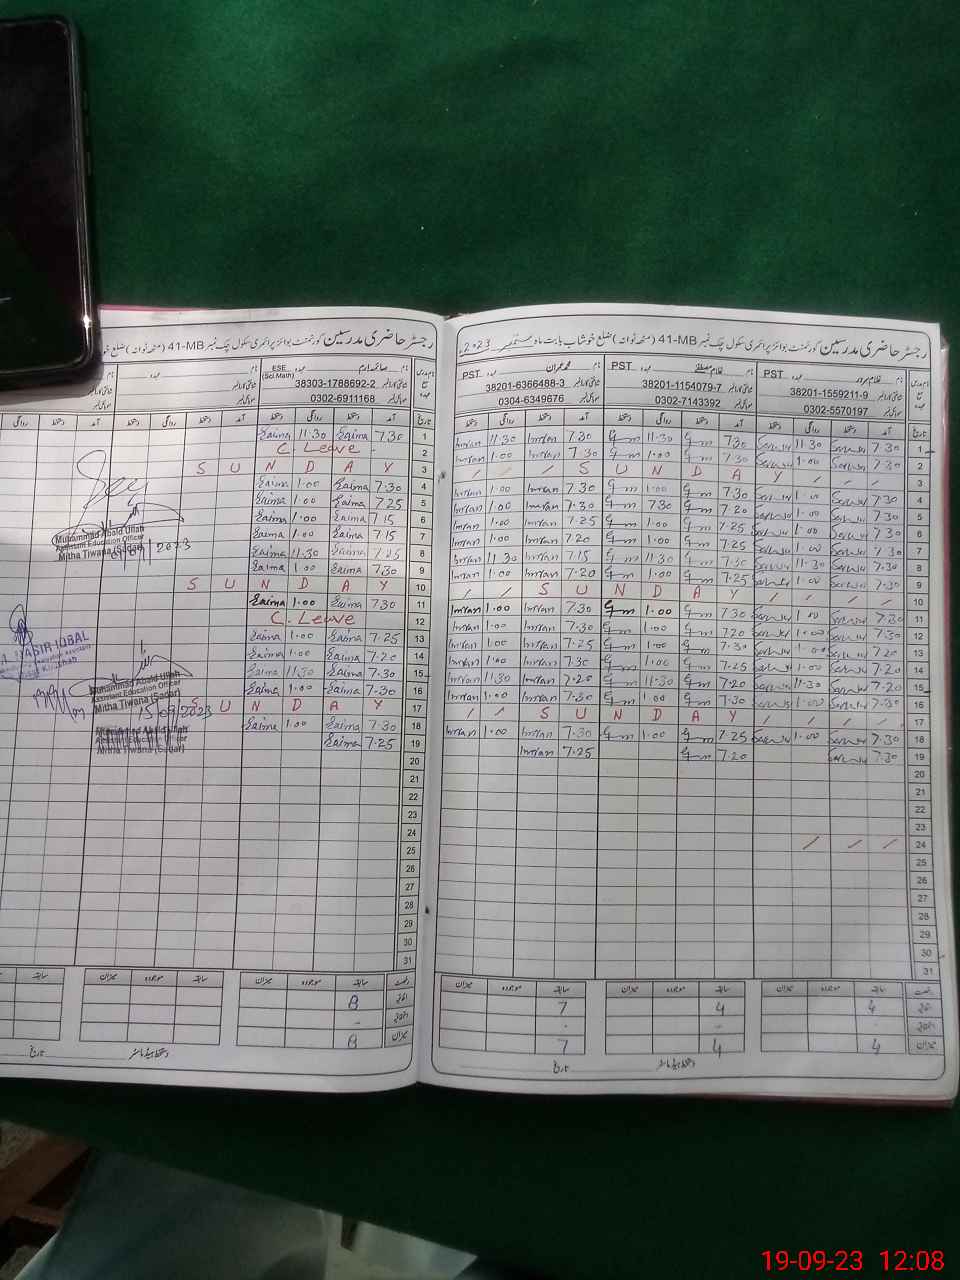 رجسٹر حاضری مدرسین گورنمنٹ بوائز پرائمری سکول چک نمبر 41-MB (مٹھہ ٹوانہ) ضلع خوشاب بابت ماہ ستمبر 2023ء
نام غلام سرور عہدہ PST
شناختی کارڈ نمبر 38201-1559211-9
موبائل نمبر 0302-5570197
نام غلام مصطفی عہدہ PST
شناختی کارڈ نمبر 38201-1154079-7
موبائل نمبر 0302-7143392
نام محمد عمران عہدہ PST
شناختی کارڈ نمبر 38201-6366488-3
موبائل نمبر 0304-6349676
تاریخ آمد دستخط روانگی دستخط آمد دستخط روانگی دستخط آمد دستخط روانگی دستخط
1 7.30 Sarwar 11.30 Sarwar 7.30 Gm 11.30 Gm 7.30 Imran 11.30 Imran
2 7.30 Sarwar 1.00 Sarwar 7.30 Gm 1.00 Gm 7.30 Imran 1.00 Imran
3 / / S U N D A Y / / /
4 7.30 Sarwar 1.00 Sarwar 7.30 Gm 1.00 Gm 7.30 Imran 1.00 Imran
5 7.30 Sarwar 1.00 Sarwar 7.20 Gm 7.30 Gm 7.30 Imran 1.00 Imran
6 7.30 Sarwar 1.00 Sarwar 7.25 Gm 1.00 Gm 7.25 Imran 1.00 Imran
7 7.30 Sarwar 1.00 Sarwar 7.25 Gm 1.00 Gm 7.20 Imran 1.00 Imran
8 7.30 Sarwar 11.30 Sarwar 7.30 Gm 11.30 Gm 7.15 Imran 11.30 Imran
9 7.30 Sarwar 1.00 Sarwar 7.25 Gm 1.00 Gm 7.20 Imran 1.00 Imran
10 / / S U N D A Y / / /
11 7.30 Sarwar 1.00 Sarwar 7.30 Gm 1.00 Gm 7.30 Imran 1.00 Imran
12 7.30 Sarwar 1.00 Sarwar 7.20 Gm 1.00 Gm 7.30 Imran 1.00 Imran
13 7.20 Sarwar 1.00 Sarwar 7.30 Gm 1.00 Gm 7.25 Imran 1.00 Imran
14 7.20 Sarwar 1.00 Sarwar 7.25 Gm 1.00 Gm 7.30 Imran 1.00 Imran
15 7.20 Sarwar 11.30 Sarwar 7.20 Gm 11.30 Gm 7.20 Imran 11.30 Imran
16 7.30 Sarwar 1.00 Sarwar 7.30 Gm 1.00 Gm 7.30 Imran 1.00 Imran
17 / / S U N D A Y / / /
18 7.30 Sarwar 1.00 Sarwar 7.25 Gm 1.00 Gm 7.30 Imran 1.00 Imran
19 7.30 Sarwar 7.20 Gm 7.25 Imran
20
21
22
23
24 / / /
25
26
27
28
29
30
31
رخصت سابقہ موجودہ میزان سابقہ موجودہ میزان سابقہ موجودہ میزان
4 4 7
- - -
میزان 4 4 7
دستخط ہیڈ ماسٹر تاریخ
رجسٹر حاضری مدرسین گورنمنٹ بوائز پرائمری سکول چک نمبر 41-MB (مٹھہ ٹوانہ) ضلع
نام صائمہ ارم عہدہ ESE (Sci.Math)
شناختی کارڈ نمبر 38303-1788692-2
موبائل نمبر 0302-6911168
تاریخ آمد دستخط روانگی دستخط
1 7.30 Saima 11.30 Saima
2 C. Leave
3 S U N D A Y
4 7.30 Saima 1.00 Saima
5 7.25 Saima 1.00 Saima
6 7.15 Saima 1.00 Saima
7 7.15 Saima 1.00 Saima
8 7.25 Saima 11.30 Saima
9 7.30 Saima 1.00 Saima
10 S U N D A Y
11 7.30 Saima 1.00 Saima
12 C. Leave
13 7.25 Saima 1.00 Saima
14 7.20 Saima 1.00 Saima
15 7.30 Saima 11.30 Saima
16 7.30 Saima 1.00 Saima
17 S U N D A Y
18 7.30 Saima 1.00 Saima
19 7.25 Saima
20
21
22
23
24
25
26
27
28
29
30
31
Muhammad Abaid Ullah
Assistant Education Officer
Mitha Tiwana (Sadar)
2023
IQBAL
Muhammad Abaid Ullah
Assistant Education Officer
Mitha Tiwana (Sadar)
15/09/2023
Mitha Tiwana (Sadar)
رخصت سابقہ موجودہ میزان
8
-
میزان 8
دستخط ہیڈ ماسٹر تاریخ
19-09-23 12:08